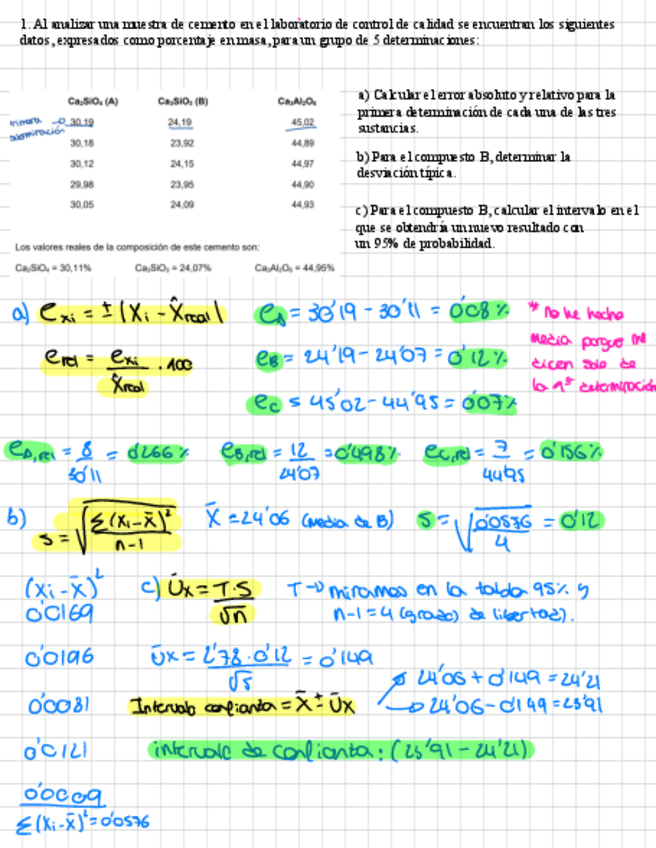 1. Al analizar una muestra de cemento en el laboratorio de control de calidad se encuentran los siguientes
datos, expresados como porcentaje en masa, para un grupo de 5 determinaciones:
Ca₂SiO₄ (A) Ca₃SiO₅ (B) Ca₃Al₂O₆
primera → 30,19 24,19 45,02
determinación
30,18 23,92 44,89
30,12 24,15 44,97
29,98 23,95 44,90
30,05 24,09 44,93
a) Calcular el error absoluto y relativo para la
primera determinación de cada una de las tres
sustancias.
b) Para el compuesto B, determinar la
desviación típica.
c) Para el compuesto B, calcular el intervalo en el
que se obtendría un nuevo resultado con
un 95% de probabilidad.
Los valores reales de la composición de este cemento son:
Ca₂SiO₄ = 30,11% Ca₃SiO₅ = 24,07% Ca₃Al₂O₆ = 44,95%
a) e xi = ± |Xi - X̂real| eA = 30'19 - 30'11 = 0'08 %
erel = exi / X̂real . 100 eB = 24'19 - 24'07 = 0'12 %
eC = 45'02 - 44'95 = 0'07%
* No he hecho
media porque me
dicen solo de
la 1ª determinación
eA,rel = 8/30'11 = 0'266 % eB,rel = 12/24'07 = 0'498% eC,rel = 7/44'95 = 0'156%
b) s = √(Σ(Xi - X̄)²/n-1) X̄ = 24'06 (media de B) s = √(0'0576/4) = 0'12
(Xi - X̄)² c) Ux = T·S/√n T → miramos en la tabla 95% y
0'0169 n-1=4 (grados de libertad).
0'0196 Ux = 2'78·0'12/√5 = 0'149
24'06 + 0'149 = 24'21
0'0081 Intervalo confianza = X̄ ± Ux → 24'06 - 0'149 = 23'91
0'0121 intervalo de confianza: (23'91 - 24'21)
0'0009
Σ(Xi - X̄)² = 0'0576